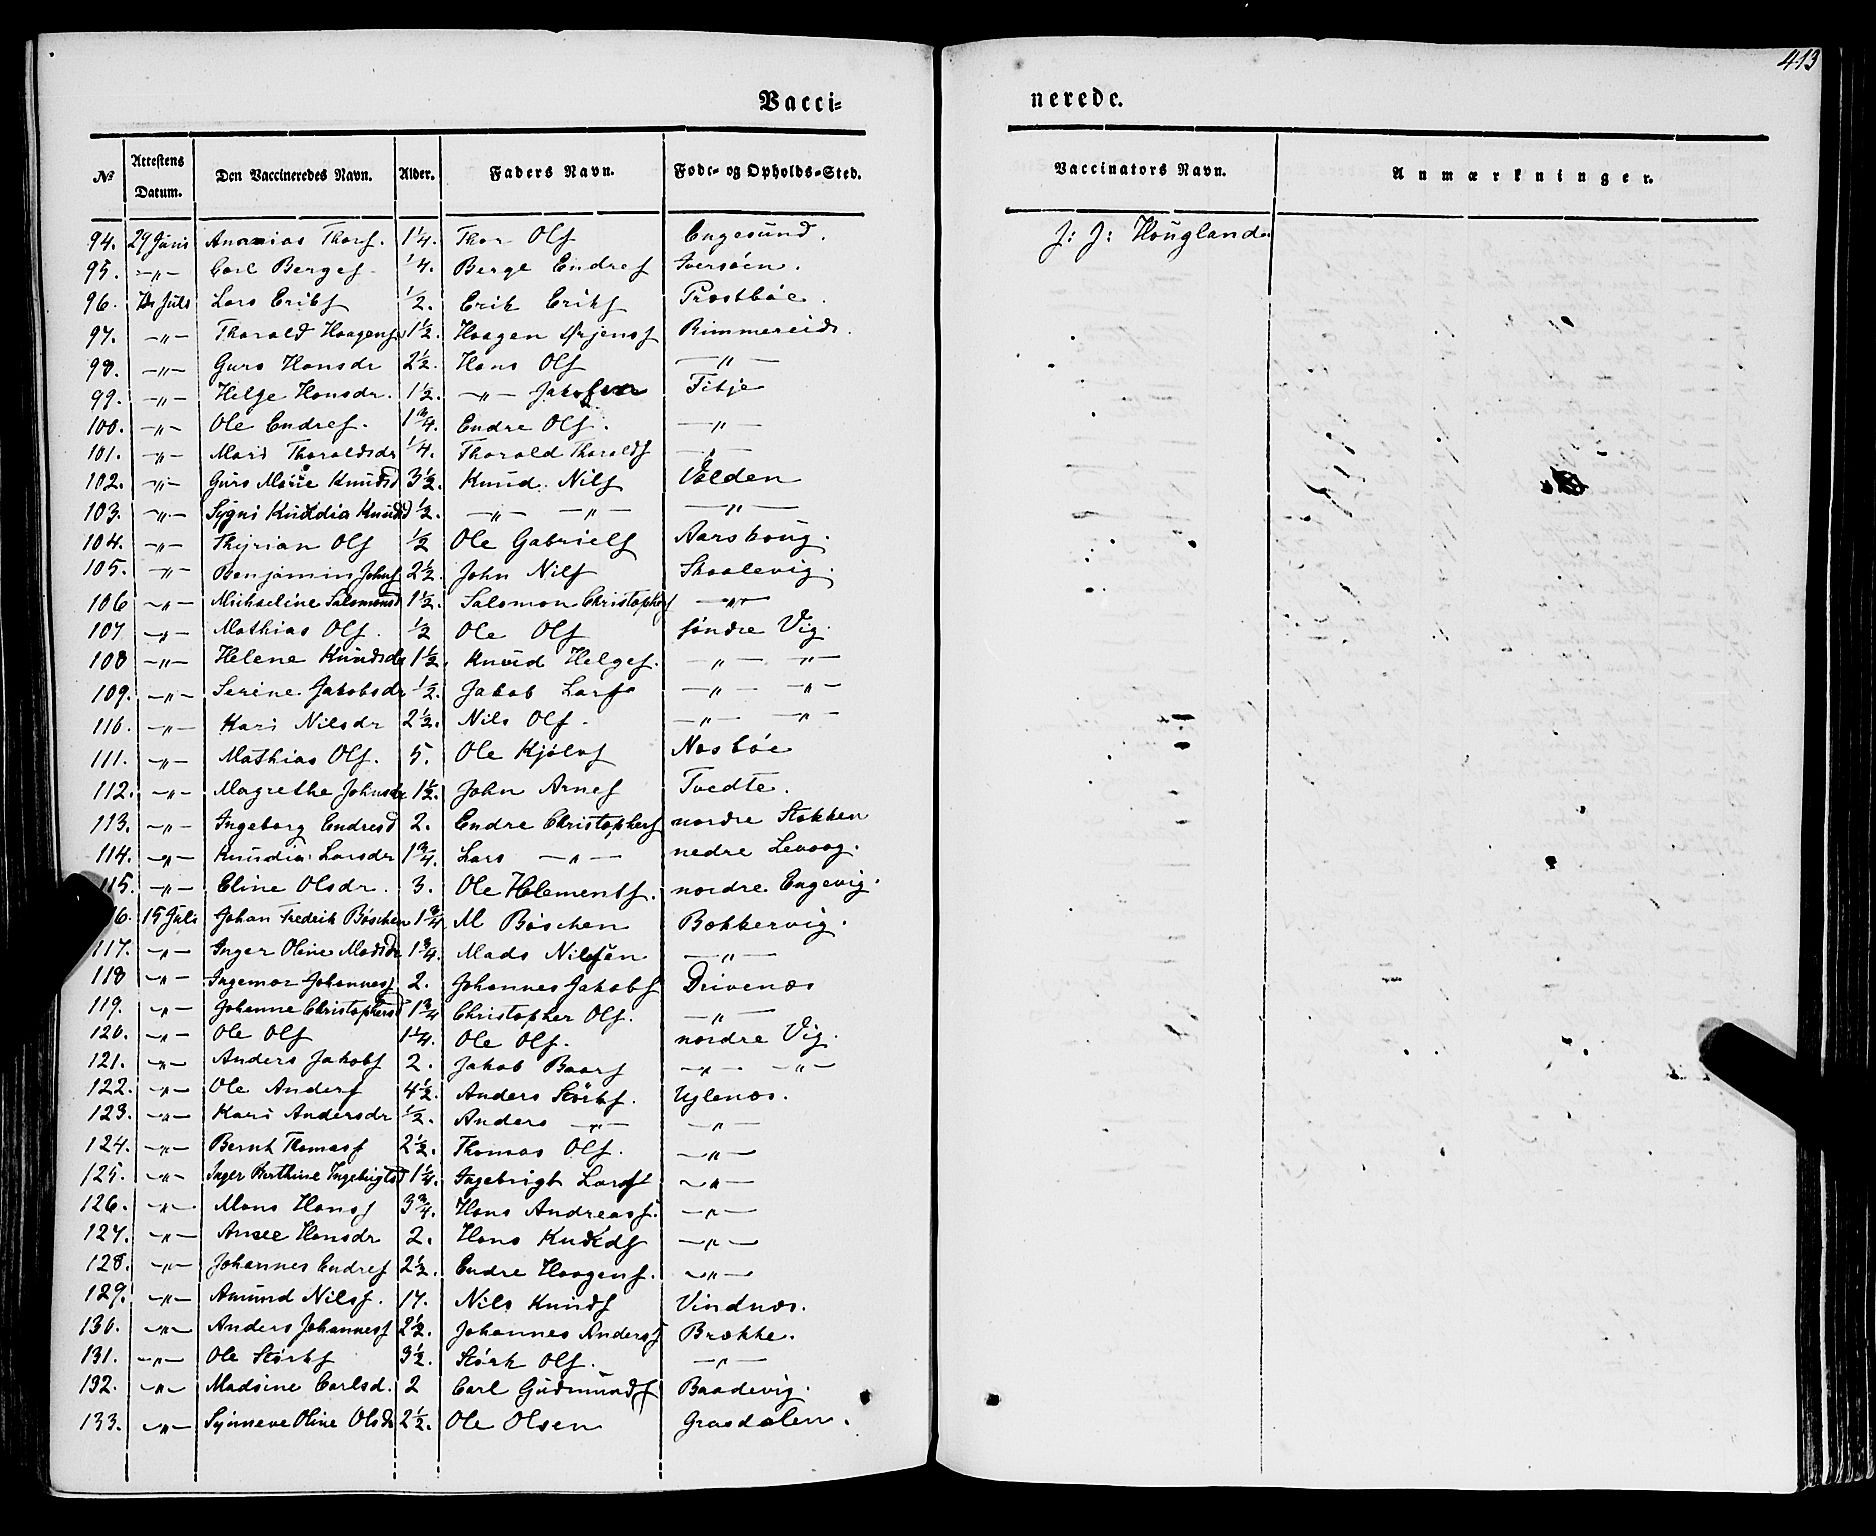 413
Vacci- nerede.
No Attestens Datum. Den Vaccineredes Navn. Alder. Faders Navn. Føde- og Opholds-Sted. Vaccinators Navn. Anmærkninger.
94. 29 Juni Ananias Thorf. 1¼. Thor Olf Engesund. J: J: Houglande
95. —"— Carl Bergef ¼. Berge Endref Iversöen.
96. Juli Lars Erikf ½. Erik Erikf Prestböe.
97. —"— Thorold Haagenf 1½. Haagen Ørjensf Rimmereid.
98. —"— Guro Hansdr 2½. Hans Olf —"—
99. —"— Helge Hansdr. 1½. —"— Titje
100. —"— Ole Endref. 1¾. Endre Olf. —"—
101. —"— Mari Tharaldsdr ¼. Tharald Tharaldf —"—
102. —"— Guro Knudsd 3½. Knud Nilf Valden
103. —"— Sygni Knudsd ½. —"— —"— —"—
104. —"— Thyrian Olf ½ Ole Gabrielf Aarskoug.
105. —"— Benjamin Johnf 2½. John Nilf Skaalevig.
106 —"— Michaeline Salomonsd 1½. Salomon Christophf —"—
107 —"— Mathias Olf. ½ Ole Olf söndre Vig.
108 —"— Helene Knudsdr 1½. Knud Helgef. —"— —"—
109. —"— Serine Jakobsdr ½. Jakob Larf —"— —"—
110. —"— Kari Nilsdr 2½. Nils Olf. —"— —"—
111. —"— Mathias Olf. 5. Ole Kjölvf Nesböe
112. —"— Magrethe Johnsdr 1½. John Arnef Tvedte.
113. —"— Ingeborg Endresd 2. Endre Christopherf nordre Stokken
114. —"— Knudia Larsdr 1¾. Lars —"— nedre Levaag.
115. —"— Eline Olsdr. 3. Ole Klementf. nordre Engevig.
6. 15 Juli Johan Fredrik Böschen 1¾ M Böschen Bekkervig.
117. —"— Inger Oline Madsdr 1¾. Mads Nilsen —"—
118 —"— Ingemor Johannesf 2. Johannes Jakobf Drivenes
119. —"— Johanne Christophersd 1¾ Christopher Olf. —"—
120. —"— Ole Olf 1¼. Ole Olf. nordre Vig.
121. —"— Anders Jakobf 2. Jakob Baarf —"— —"—
122. —"— Ole Anderf 4½. Anders Störkf. Uglenes.
123. —"— Kari Andersdr ½. Anders —"— —"—
124. —"— Bernt Thomasf 2½. Thomas Olf. —"—
125. —"— Inger Berthine Ingebrigtsd 1¼. Ingebrigt Larsf —"—
126. —"— Mons Hansf 3¾. Hans Andreasf. —"—
127. —"— Hansdr 2. Hans Knudf —"—
128. —"— Johannes Endref 2½. Endre Haagenf. —"—
129. —"— Amund Nilsf. 17. Nils Knudf Vindnes.
130. —"— Anders Johannesf 2½. Johannes Andersf Brekke.
131. —"— Ole Störkf 3½. Störk Olf. —"—
132. —"— Madsine Carlsd. 2 Carl Gudmundf Baadevig.
133. —"— Synneve Oline Olsdr 2½. Ole Olsen Grasdalen.